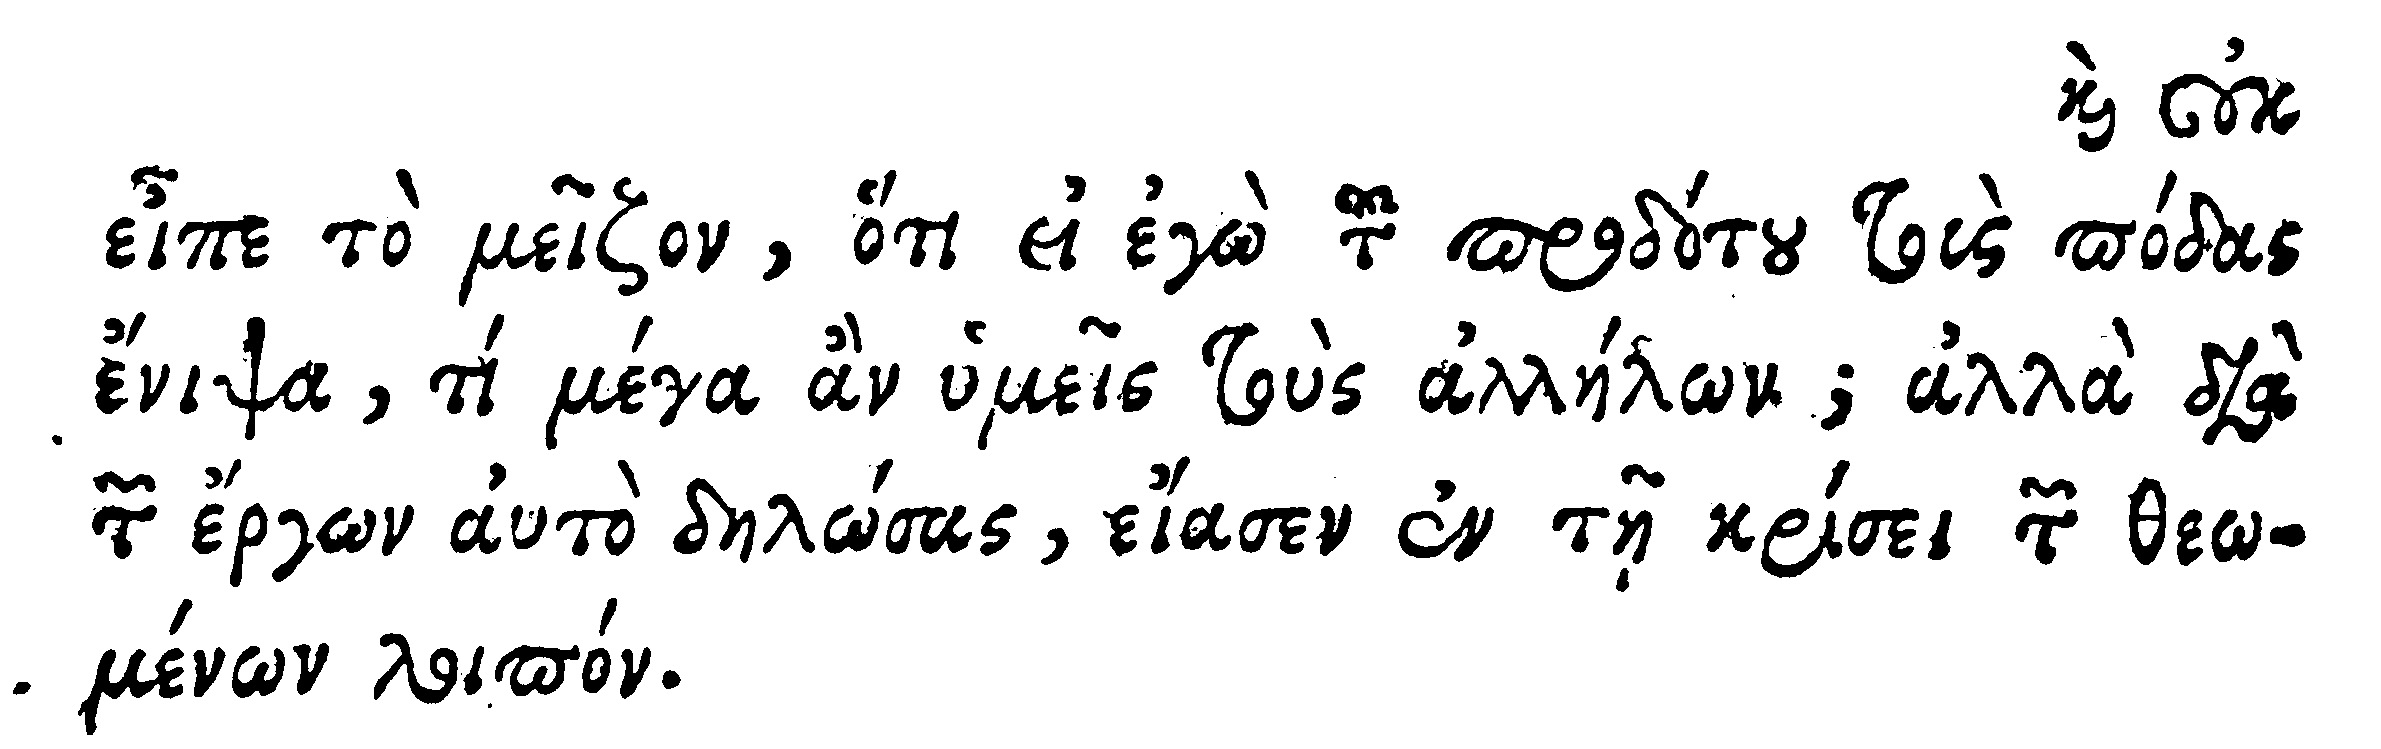 καὶ οὐκ
εἶπε τὸ μεῖζον, ὅτι εἰ ἐγὼ τοῦ προδότου τοὺς πόδας
ἔνιψα, τί μέγα ἂν ὑμεῖς τοὺς ἀλλήλων; ἀλλὰ διὰ
τῶν ἔργων αὐτὸ δηλώσας, εἴασεν ἐν τῇ κρίσει τῶν θεω-
μένων λοιπόν.